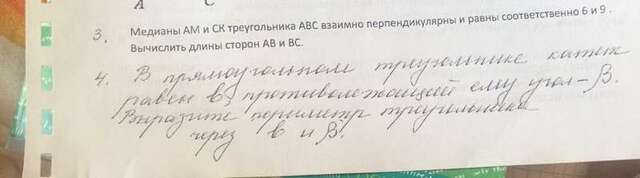 A C
3. Медианы АМ и СК треугольника АВС взаимно перпендикулярны и равны соответственно 6 и 9 .
Вычислить длины сторон АВ и ВС.
4. В прямоугольном треугольнике катет
равен b, противолежащий ему угол - β.
Выразите периметр треугольника
через b и β.